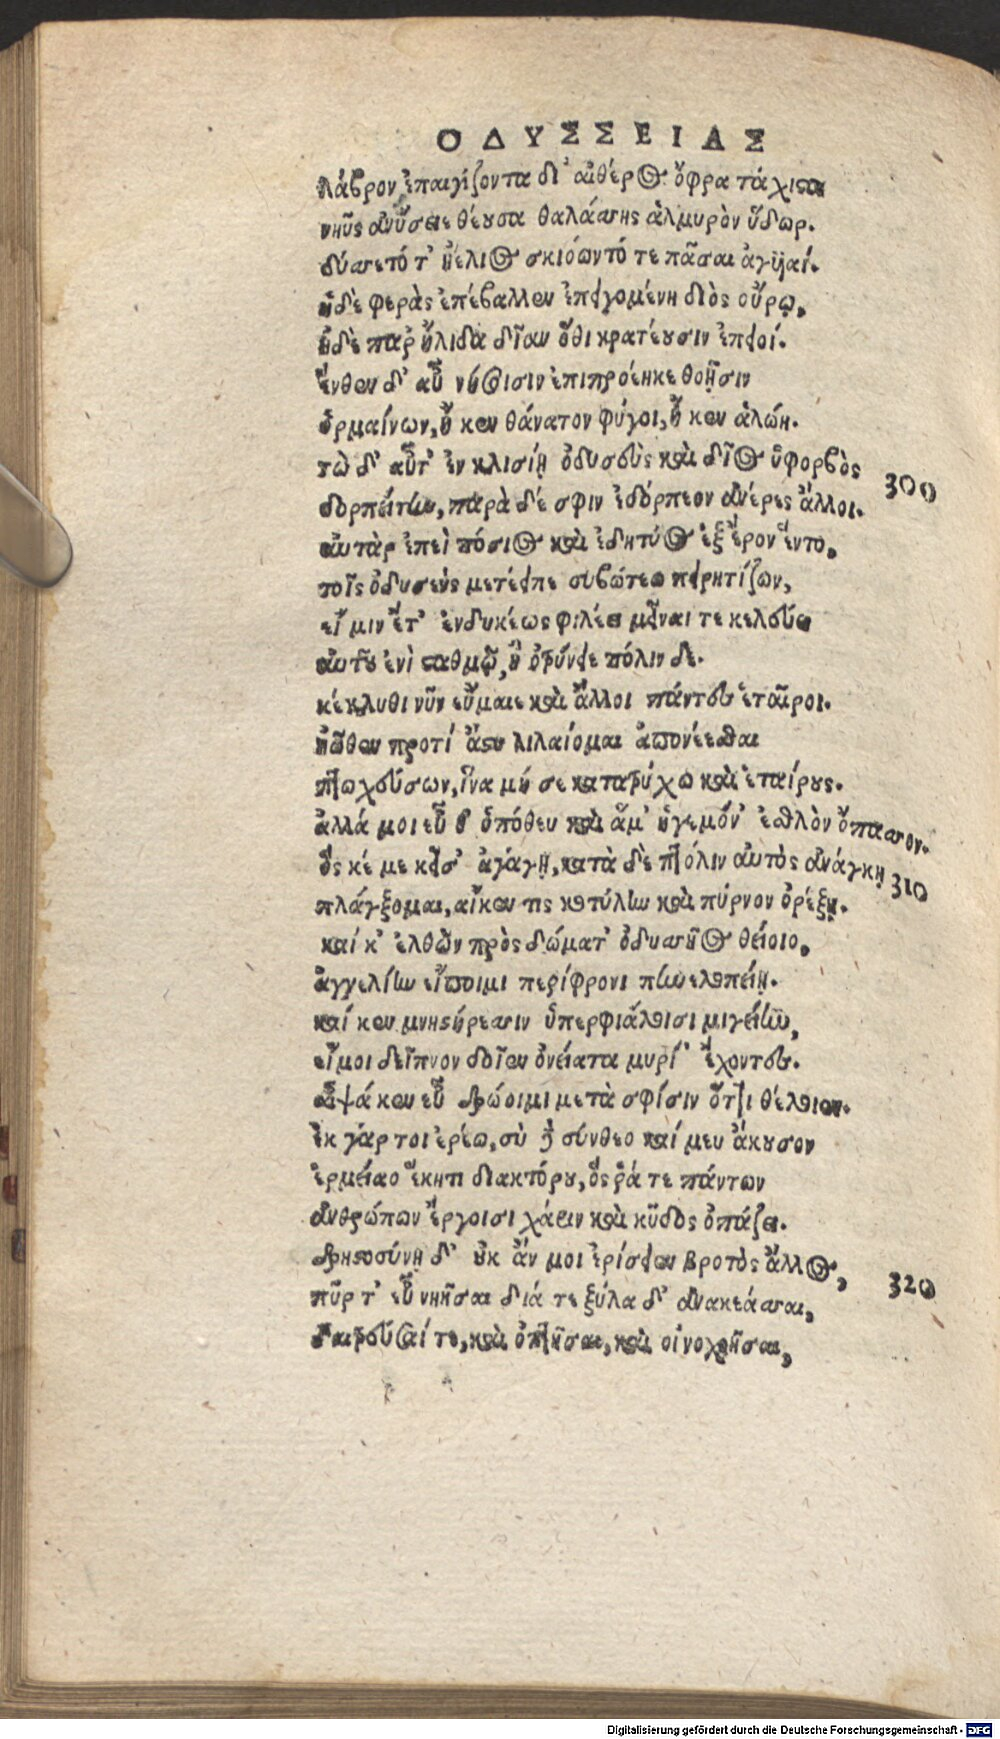 ΟΔΥΣΣΕΙΑΣ
λάβρον ἐπαιγίζοντα δι' αἰθέρος ὄφρα τάχιστα
νηῦς ἀνύσειε θέουσα θαλάσσης ἁλμυρὸν ὕδωρ.
δύσετό τ' ἠέλιος σκιόωντό τε πᾶσαι ἀγυιαί.
ἡ δὲ φερὰς ἐπέβαλλεν ἐπειγομένη διὸς οὔρῳ,
ἠδὲ παρ' ἤλιδα δῖαν ὅθι κρατέουσιν ἐπειοί.
ἔνθεν δ' αὖ νήσοισιν ἐπιπροέηκε θοῇσιν
ὁρμαίνων, ἤ κεν θάνατον φύγοι, ἤ κεν ἁλώη.
τὼ δ' αὖτ' ἐν κλισίῃ ὀδυσεὺς καὶ δῖος ὑφορβὸς
δορπείτην, παρὰ δέ σφιν ἐδόρπεον ἀνέρες ἄλλοι.
300
αὐτὰρ ἐπεὶ πόσιος καὶ ἐδητύος ἐξ ἔρον ἕντο,
τοῖς ὀδυσεὺς μετέειπε συβώτεω πειρητίζων,
εἴ μιν ἔτ' ἐνδυκέως φιλέει μεῖναί τε κελεύει
αὐτοῦ ἐνὶ σταθμῷ, ἢ ὀτρύνειε πόλιν δε.
κέκλυθι νῦν εὔμαιε καὶ ἄλλοι πάντες ἑταῖροι.
ἠῶθεν προτί ἄστυ λιλαίομαι ἀπονέεσθαι
πτωχεύσων, ἵνα μή σε κατατρύχω καὶ ἑταίρους.
ἀλλά μοι εὖ θ' ὑπόθευ καὶ ἅμ' ἡγεμόν' ἐσθλὸν ὄπασσον.
ὅς κέ με κεῖσ' ἀγάγῃ, κατὰ δὲ πτόλιν αὐτὸς ἀνάγκῃ
310
πλάγξομαι, αἴκεν τις κοτύλην καὶ πύρνον ὀρέξῃ.
καί κ' ἐλθὼν πρὸς δώματ' ὀδυσσῆος θείοιο,
ἀγγελίην εἴποιμι περίφρονι πηνελοπείῃ.
καί κεν μνηστήρεσσιν ὑπερφιάλοισι μιγείην,
εἴ μοι δεῖπνον δοῖεν ὀνείατα μυρί' ἔχοντες.
αἶψά κεν εὖ δρώοιμι μετὰ σφίσιν ὅττι θέλοιεν.
ἐκ γάρ τοι ἐρέω, σὺ δὲ σύνθεο καί μευ ἄκουσον
ἑρμείαο ἕκητι διακτόρου, ὅς ῥά τε πάντων
ἀνθρώπων ἔργοισι χάριν καὶ κῦδος ὀπάζει.
δρηστοσύνῃ δ' οὐκ ἄν μοι ἐρίσειεν βροτὸς ἄλλος,
320
πῦρ τ' εὖ νηῆσαι διά τε ξύλα δ' ἀνακεάσσαι,
δαιτρεῦσαί τε, καὶ ὀπτῆσαι, καὶ οἰνοχοῆσαι,
Digitalisierung gefördert durch die Deutsche Forschungsgemeinschaft - DFG